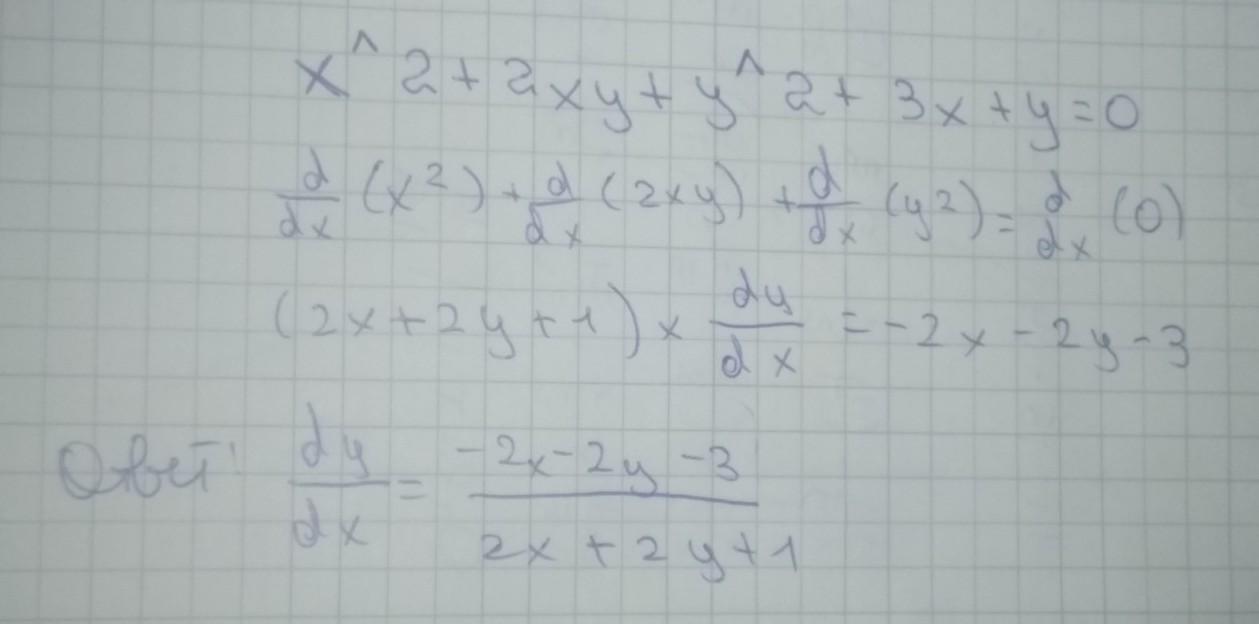 x^2+2xy+y^2+3x+y=0
d/dx (x²)+d/dx (2xy)+d/dx (y²)=d/dx (0)
(2x+2y+1)×dy/dx=-2x-2y-3
Ответ: dy/dx=(-2x-2y-3)/(2x+2y+1)